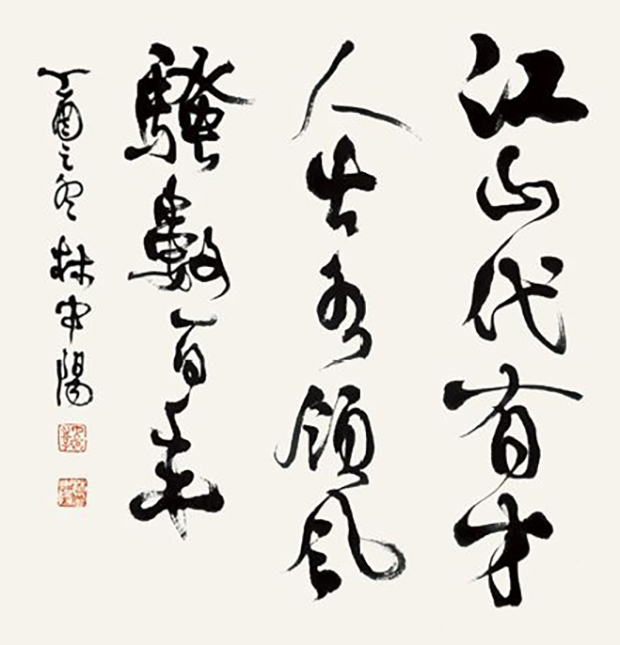 江山代有才
人出各领风
骚数百年
丁酉之冬 林中阳